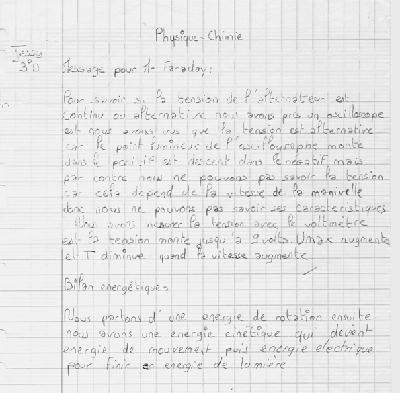 Physique-Chimie
Jessy
3°D
Message pour Mr Faraday:
Pour savoir si la tension de l'alternateur est
continu ou alternative nous avons pris un oscilloscope
est nous avons vus que la tension est alternative
car le point lumineux de l'oscilloscope monte
dans le positif est descent dans le negatif mais
par contre nous ne pouvons pas savoir la tension
car cela depend de la vitesse de la manivelle
donc nous ne pouvons pas savoir ses caracteristiques
Nous avons mesurer la tension avec le voltmètre
est la tension monte jusqu'a volts. Umax augmente
et T diminue quand la vitesse augmente
Bilan energétique:
Nous partons d'une energie de rotation ensuite
nous avons une énergie cinétique qui devient
energie de mouvement puis énergie electrique
pour finir en energie de lumière